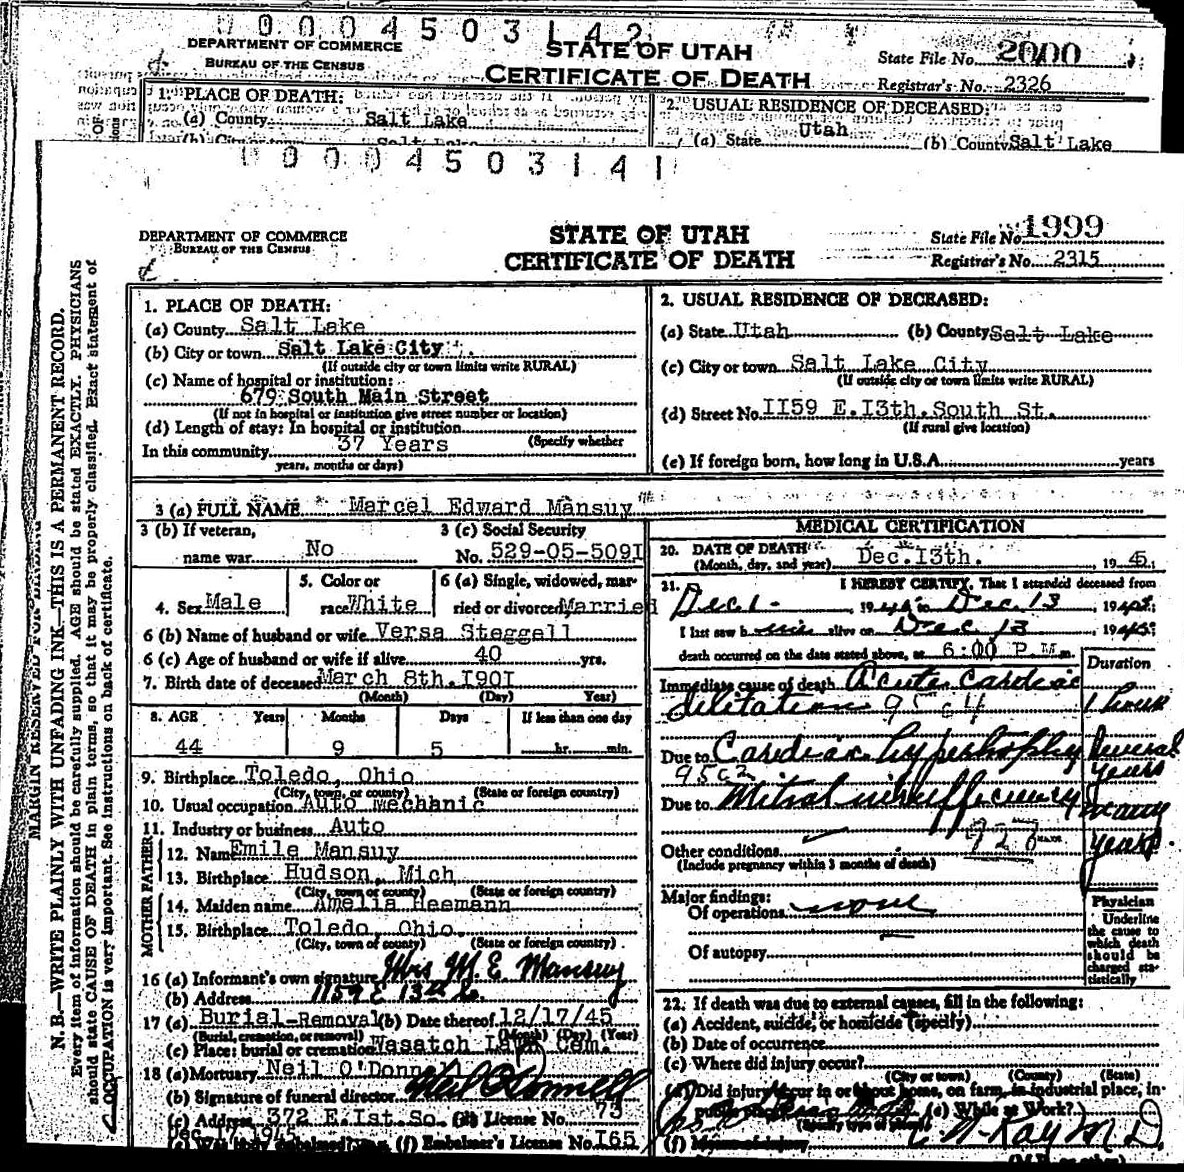 0 0 0 4 5 0 3 1 4 2
DEPARTMENT OF COMMERCE
BUREAU OF THE CENSUS
STATE OF UTAH
CERTIFICATE OF DEATH
State File No. 2000
Registrar's No. 2326
1. PLACE OF DEATH:
(a) County Salt Lake
2. USUAL RESIDENCE OF DECEASED:
(a) State Utah (b) County Salt Lake
0 0 0 4 5 0 3 1 4 1
DEPARTMENT OF COMMERCE
BUREAU OF THE CENSUS
STATE OF UTAH
CERTIFICATE OF DEATH
State File No. 1999
Registrar's No. 2315
N. B.—WRITE PLAINLY WITH UNFADING INK—THIS IS A PERMANENT RECORD.
Every item of information should be carefully supplied. AGE should be stated EXACTLY. PHYSICIANS
should state CAUSE OF DEATH in plain terms, so that it may be properly classified. Exact statement of
OCCUPATION is very important. See instructions on back of certificate.
1. PLACE OF DEATH:
(a) County Salt Lake
(b) City or town Salt Lake City
(If outside city or town limits write RURAL)
(c) Name of hospital or institution:
679 South Main Street
(If not in hospital or institution give street number or location)
(d) Length of stay: In hospital or institution
(Specify whether
In this community 37 Years
years, months or days)
2. USUAL RESIDENCE OF DECEASED:
(a) State Utah (b) County Salt Lake
(c) City or town Salt Lake City
(If outside city or town limits write RURAL)
(d) Street No. II59 E.I3th.South St.
(If rural give location)
(e) If foreign born, how long in U.S.A. years
3 (a) FULL NAME Marcel Edward Mansuy
3 (b) If veteran,
name war No
3 (c) Social Security
No. 529-05-509I
4. Sex Male
5. Color or
race White
6 (a) Single, widowed, mar-
ried or divorced Married
6 (b) Name of husband or wife Versa Steggell
6 (c) Age of husband or wife if alive 40 yrs.
7. Birth date of deceased March 8th.I90I
(Month) (Day) Year)
8. AGE Years Months Days If less than one day
44 9 5 hr. min.
9. Birthplace Toledo, Ohio
(City, town, or county) (State or foreign country)
10. Usual occupation Auto Mechanic
11. Industry or business Auto
FATHER
12. Name Emile Mansuy
13. Birthplace Hudson, Mich
(City, town or county) (State or foreign country)
MOTHER
14. Maiden name Amelia Heemann
15. Birthplace Toledo, Ohio.
(City, town of county) (State or foreign country)
16 (a) Informant's own signature Mrs M. E. Mansuy
(b) Address 1159 E 13th So.
17 (a) Burial-Removal (b) Date thereof 12/17/45
(Burial, cremation, or removal) (Month) (Day) (Year)
(c) Place: burial or cremation Wasatch Lawn Cem.
18 (a) Mortuary Neil O'Donn
(b) Signature of funeral director Neil O'Donnell
(c) Address 372 E.Ist.So. License No. 73
(f) Embalmer's License No. I65
MEDICAL CERTIFICATION
20. DATE OF DEATH Dec.I3th. 19 45
(Month, day, and year)
21. I HEREBY CERTIFY, That I attended deceased from
Dec 1 - 1945 to Dec. 13 1945;
I last saw h im alive on Dec 13 1945;
death occurred on the date stated above, at 6:00 P.M. m.
Duration
Immediate cause of death Acute cardiac
dilitation 95c4 1 hour
Due to Cardiac hypertrophy Several
95c2 years
Due to Mitral insufficiency many
years.
Other conditions
(Include pregnancy within 3 months of death)
Major findings:
Of operations none
Of autopsy
Physician
Underline
the cause to
which death
should be
charged sta-
tistically
22. If death was due to external causes, fill in the following:
(a) Accident, suicide, or homicide (specify)
(b) Date of occurrence
(c) Where did injury occur?
(City or town) (County) (State)
(d) Did injury occur in or about home, on farm, in industrial place, in
(e) While at Work?
(Specify type of place)
(f) Means of injury